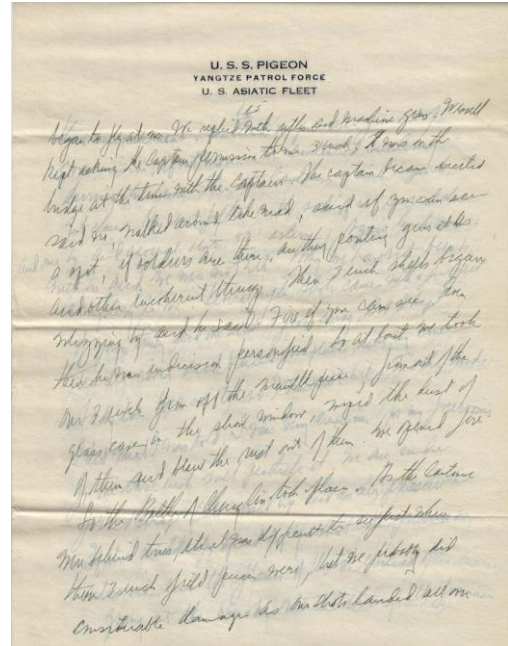 U. S. S. PIGEON
YANGTZE PATROL FORCE
U. S. ASIATIC FLEET
15
began to fly at us. We replied with rifles and machine guns.
kept asking the Captain permission to use 3 inch. I was on the
bridge at the time with the Captain. The captain became excited
said no, walked around like mad, said if you can see
a spot, if soldiers are there, are they pointing guns at us
and other incoherent things. Then 3 inch shells began
whizzing by and he said Fire if you can see, even
then he was indecision personified. So at last we took
our 3 inch gun off the
glass case in the show window, wiped the dust of
of them and blew the rust out of them. We opened fire
So the Battle of took place.
behind trees etc it was difficult to see just where
their 3 inch field pieces were, but we probably did
considerable damage as our shots landed all over